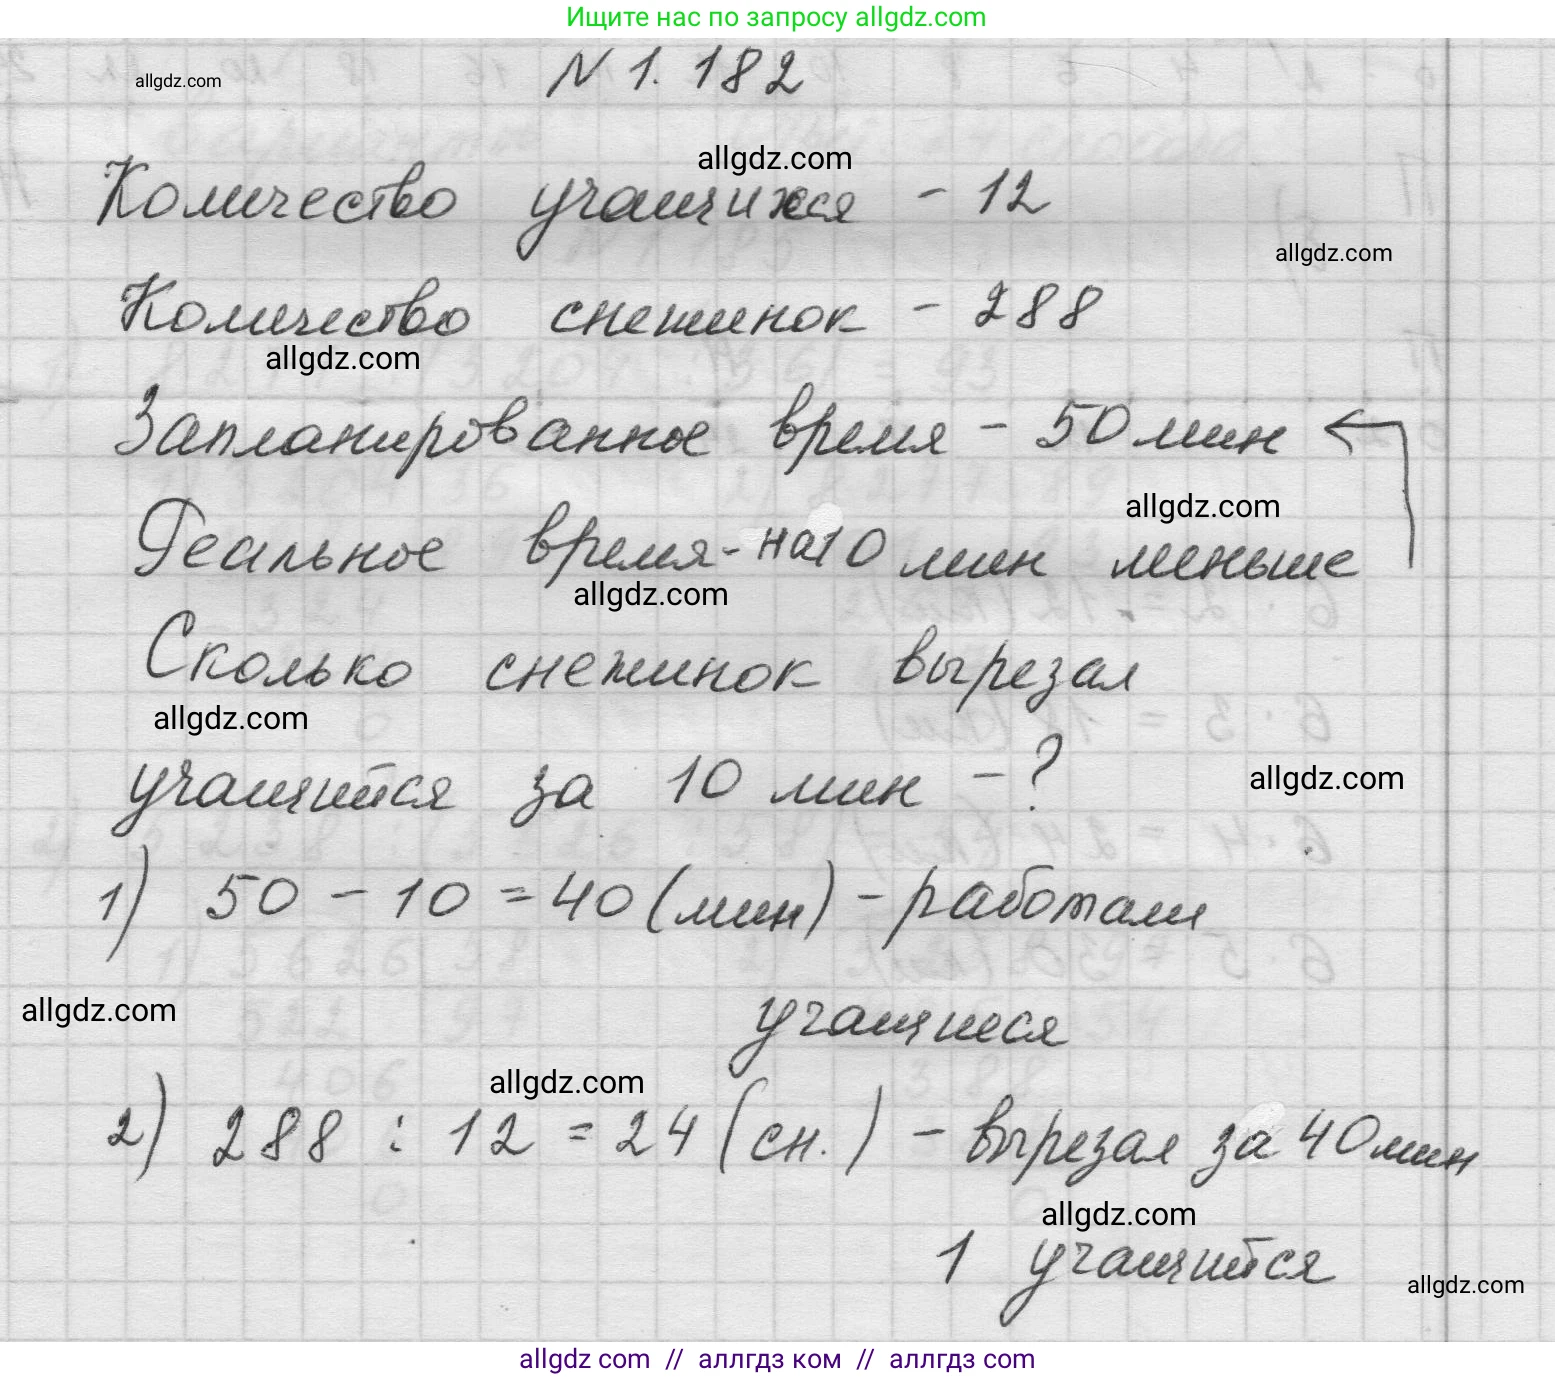 Ищите нас по запросу allgdz.com
N 1. 182
allgdz.com
allgdz.com
Количество учащихся - 12
allgdz.com
Количество снежинок - 288
allgdz.com
Запланированное время - 50 мин
allgdz.com
Реальное время - на 10 мин меньше
allgdz.com
Сколько снежинок вырезал
allgdz.com
учащийся за 10 мин - ?
allgdz.com
1) 50 - 10 = 40 (мин) - работали
allgdz.com
учащиеся
allgdz.com
2) 288 : 12 = 24 (сн.) - вырезал за 40 мин
allgdz.com
1 учащийся
allgdz.com
allgdz com // аллгдз ком // аллгдз com